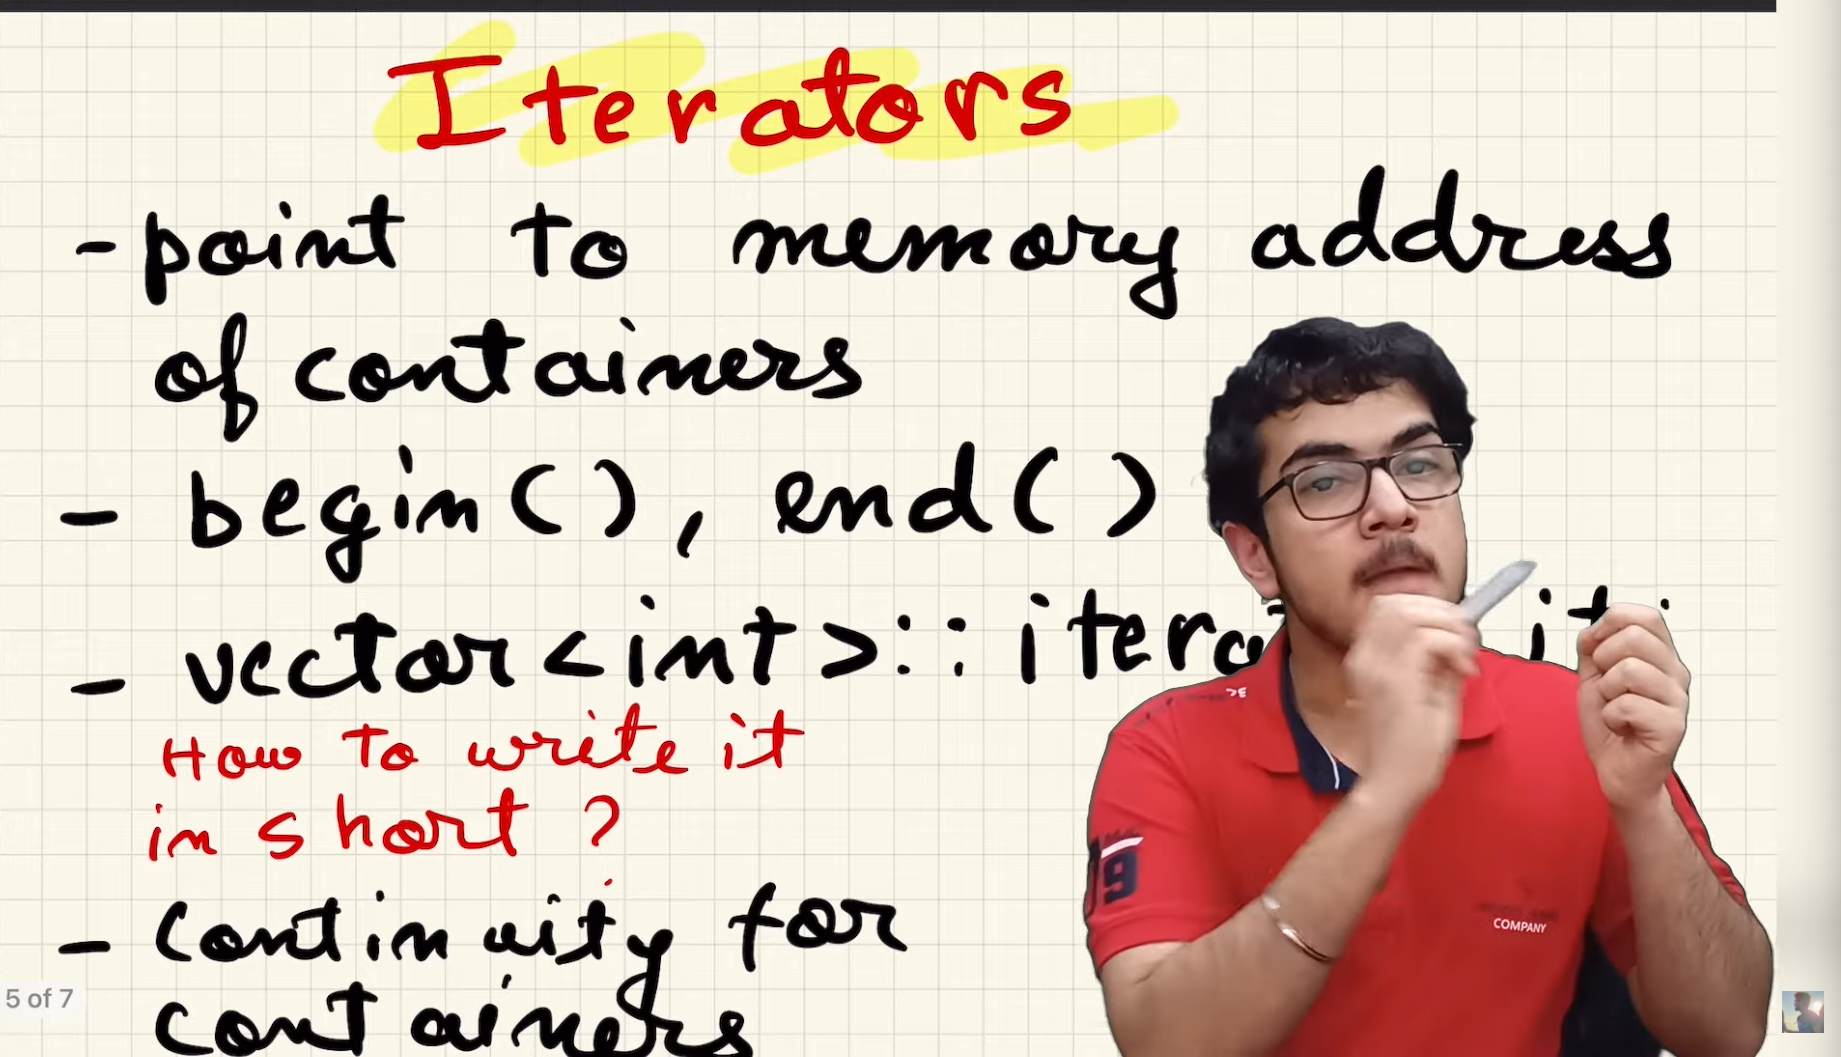 Iterators
- point to memory address
of containers
- begin(), end()
- vector<int>::itera it;
How to write it
in short ?
- Continuity for
containers
5 of 7
9
COMPANY